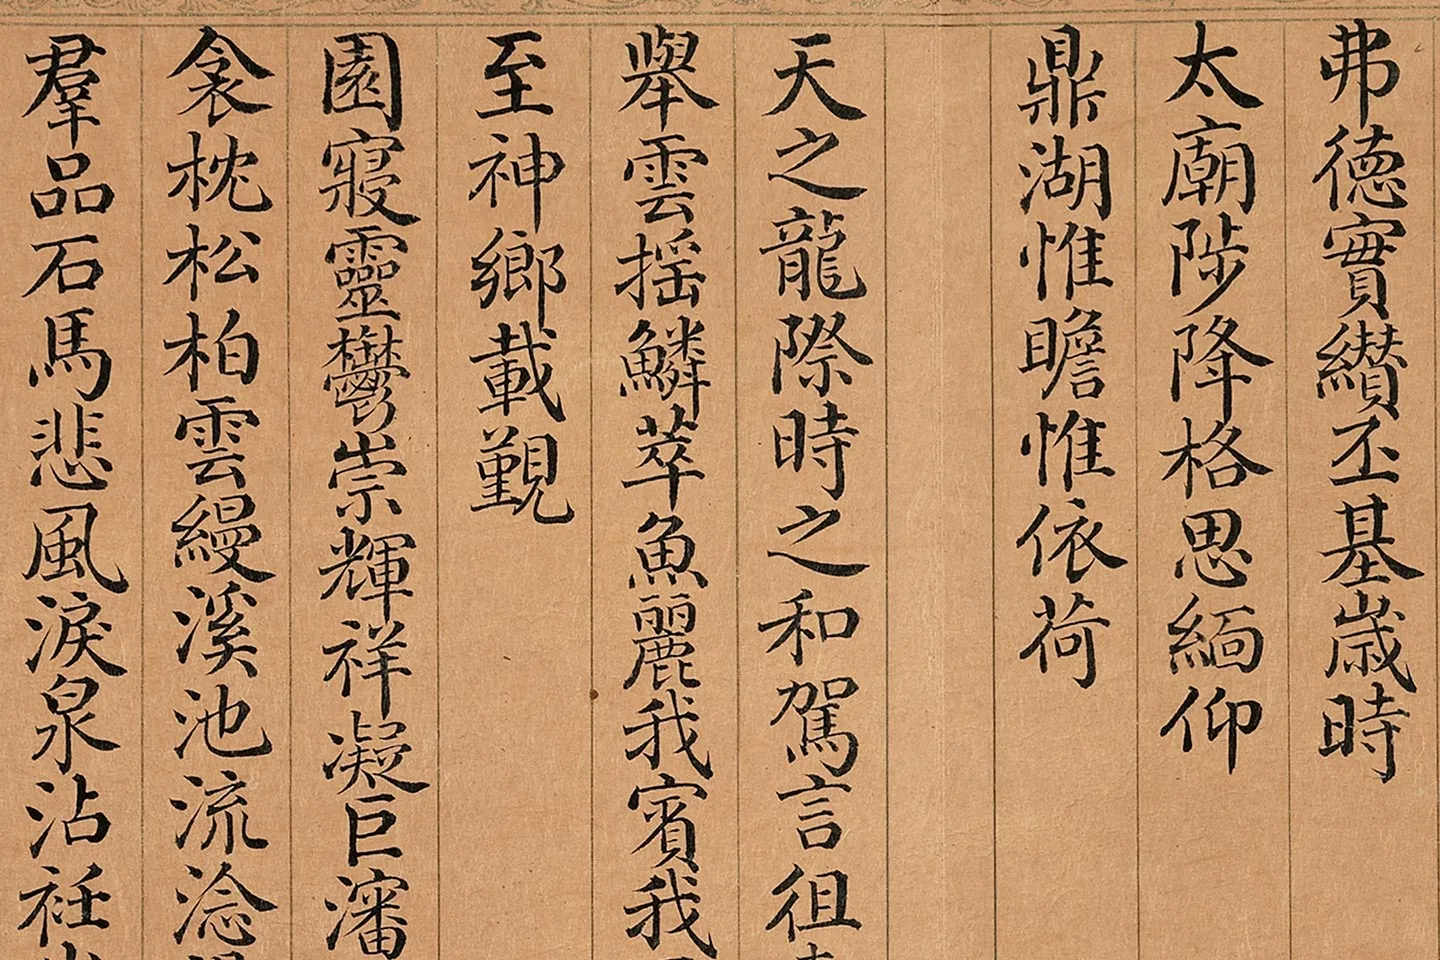 弗德實纘丕基歲時
太廟陟降格思緬仰
鼎湖惟瞻惟依荷
天之龍際時之和駕言徂
舉雲搖鱗萃魚麗我賓我
至神鄉載觀
園寢靈鬱崇輝祥凝巨瀋
衾枕松柏雲縵溪池流淰
羣品石馬悲風淚泉沾衽